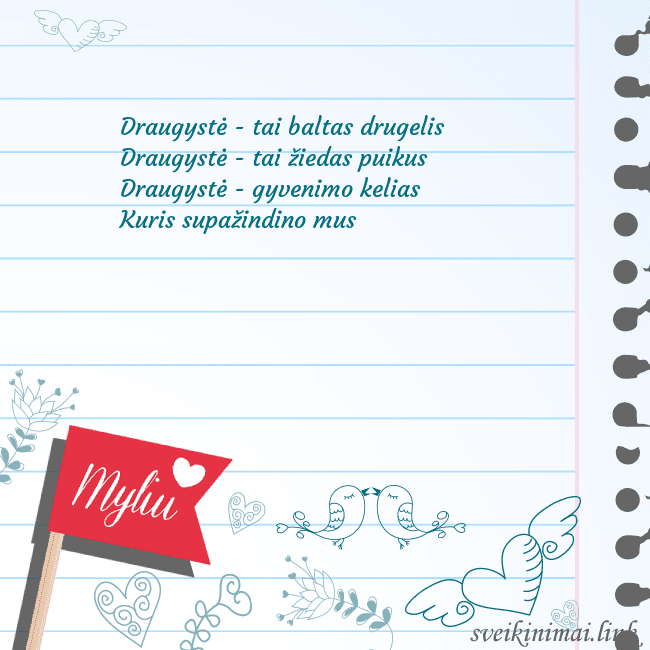 Draugystė - tai baltas drugelis
Draugystė - tai žiedas puikus
Draugystė - gyvenimo kelias
Kuris supažindino mus
Myliu
sveikinimai.link